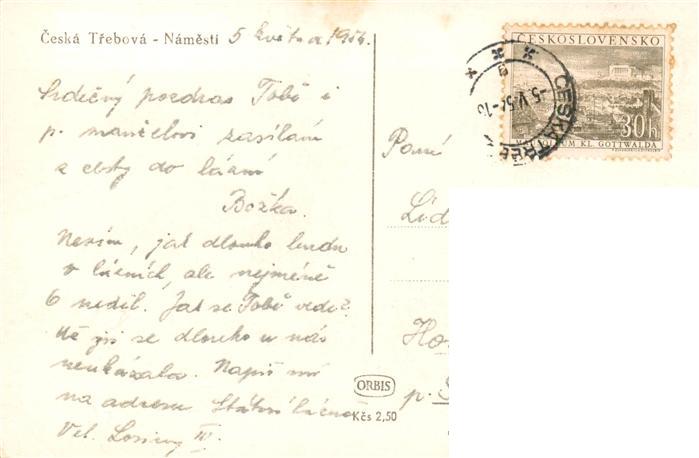 Česká Třebová - Náměstí 5 května 1954.
Srdečný pozdrav Tobě i
p. manželovi zasílám
z cesty do lázní
Božka.
Nevím, jak dlouho budu
v lázních, ale nejméně
6 neděl. Jak se Tobě vede?
Už jsi se dlouho u nás
neukázala. Napiš mi
na adresu Státní lázně
Vel. Losiny IV.
ORBIS
Kčs 2,50
ČESKOSLOVENSKO
30h
KL. GOTTWALDA
-5.V.54-
ČESKÁ TŘEB
Paní
Lid
Ho
p.